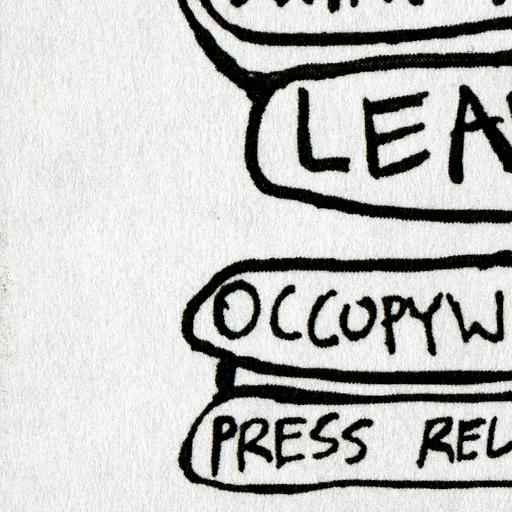 LEA
OCCUPYW
PRESS REL